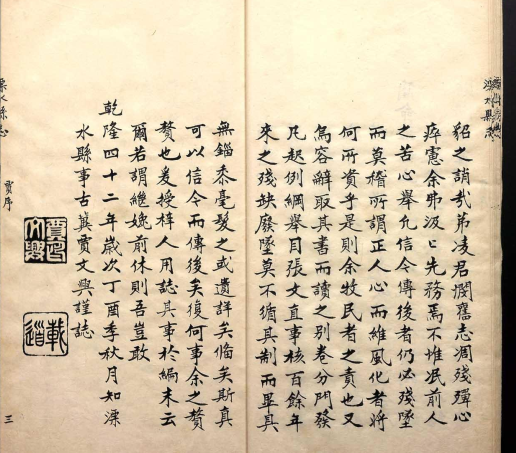 貂之誚哉弟凌君憫舊志凋殘殫心
瘁慮余弗汲〻先務焉不惟泯前人
之苦心舉凡信今傳後者仍必殘墜
而莫稽所謂正人心而維風化者將
何所資乎是則余牧民者之責也又
烏容辭取其書而讀之別卷分門發
凡起例綱舉目張文直事核百餘年
來之殘缺廢墜莫不循其制而畢具
無錙黍毫髮之或遺詳矣俻矣斯真
可以信今而傳後矣復何事余之贅
贅也爰授梓人用誌其事於編末云
爾若謂繼媲前休則吾豈敢
乾隆四十二年歲次丁酉季秋月知溧
水縣事古冀賈文興謹誌
溧水縣志
賈序
三